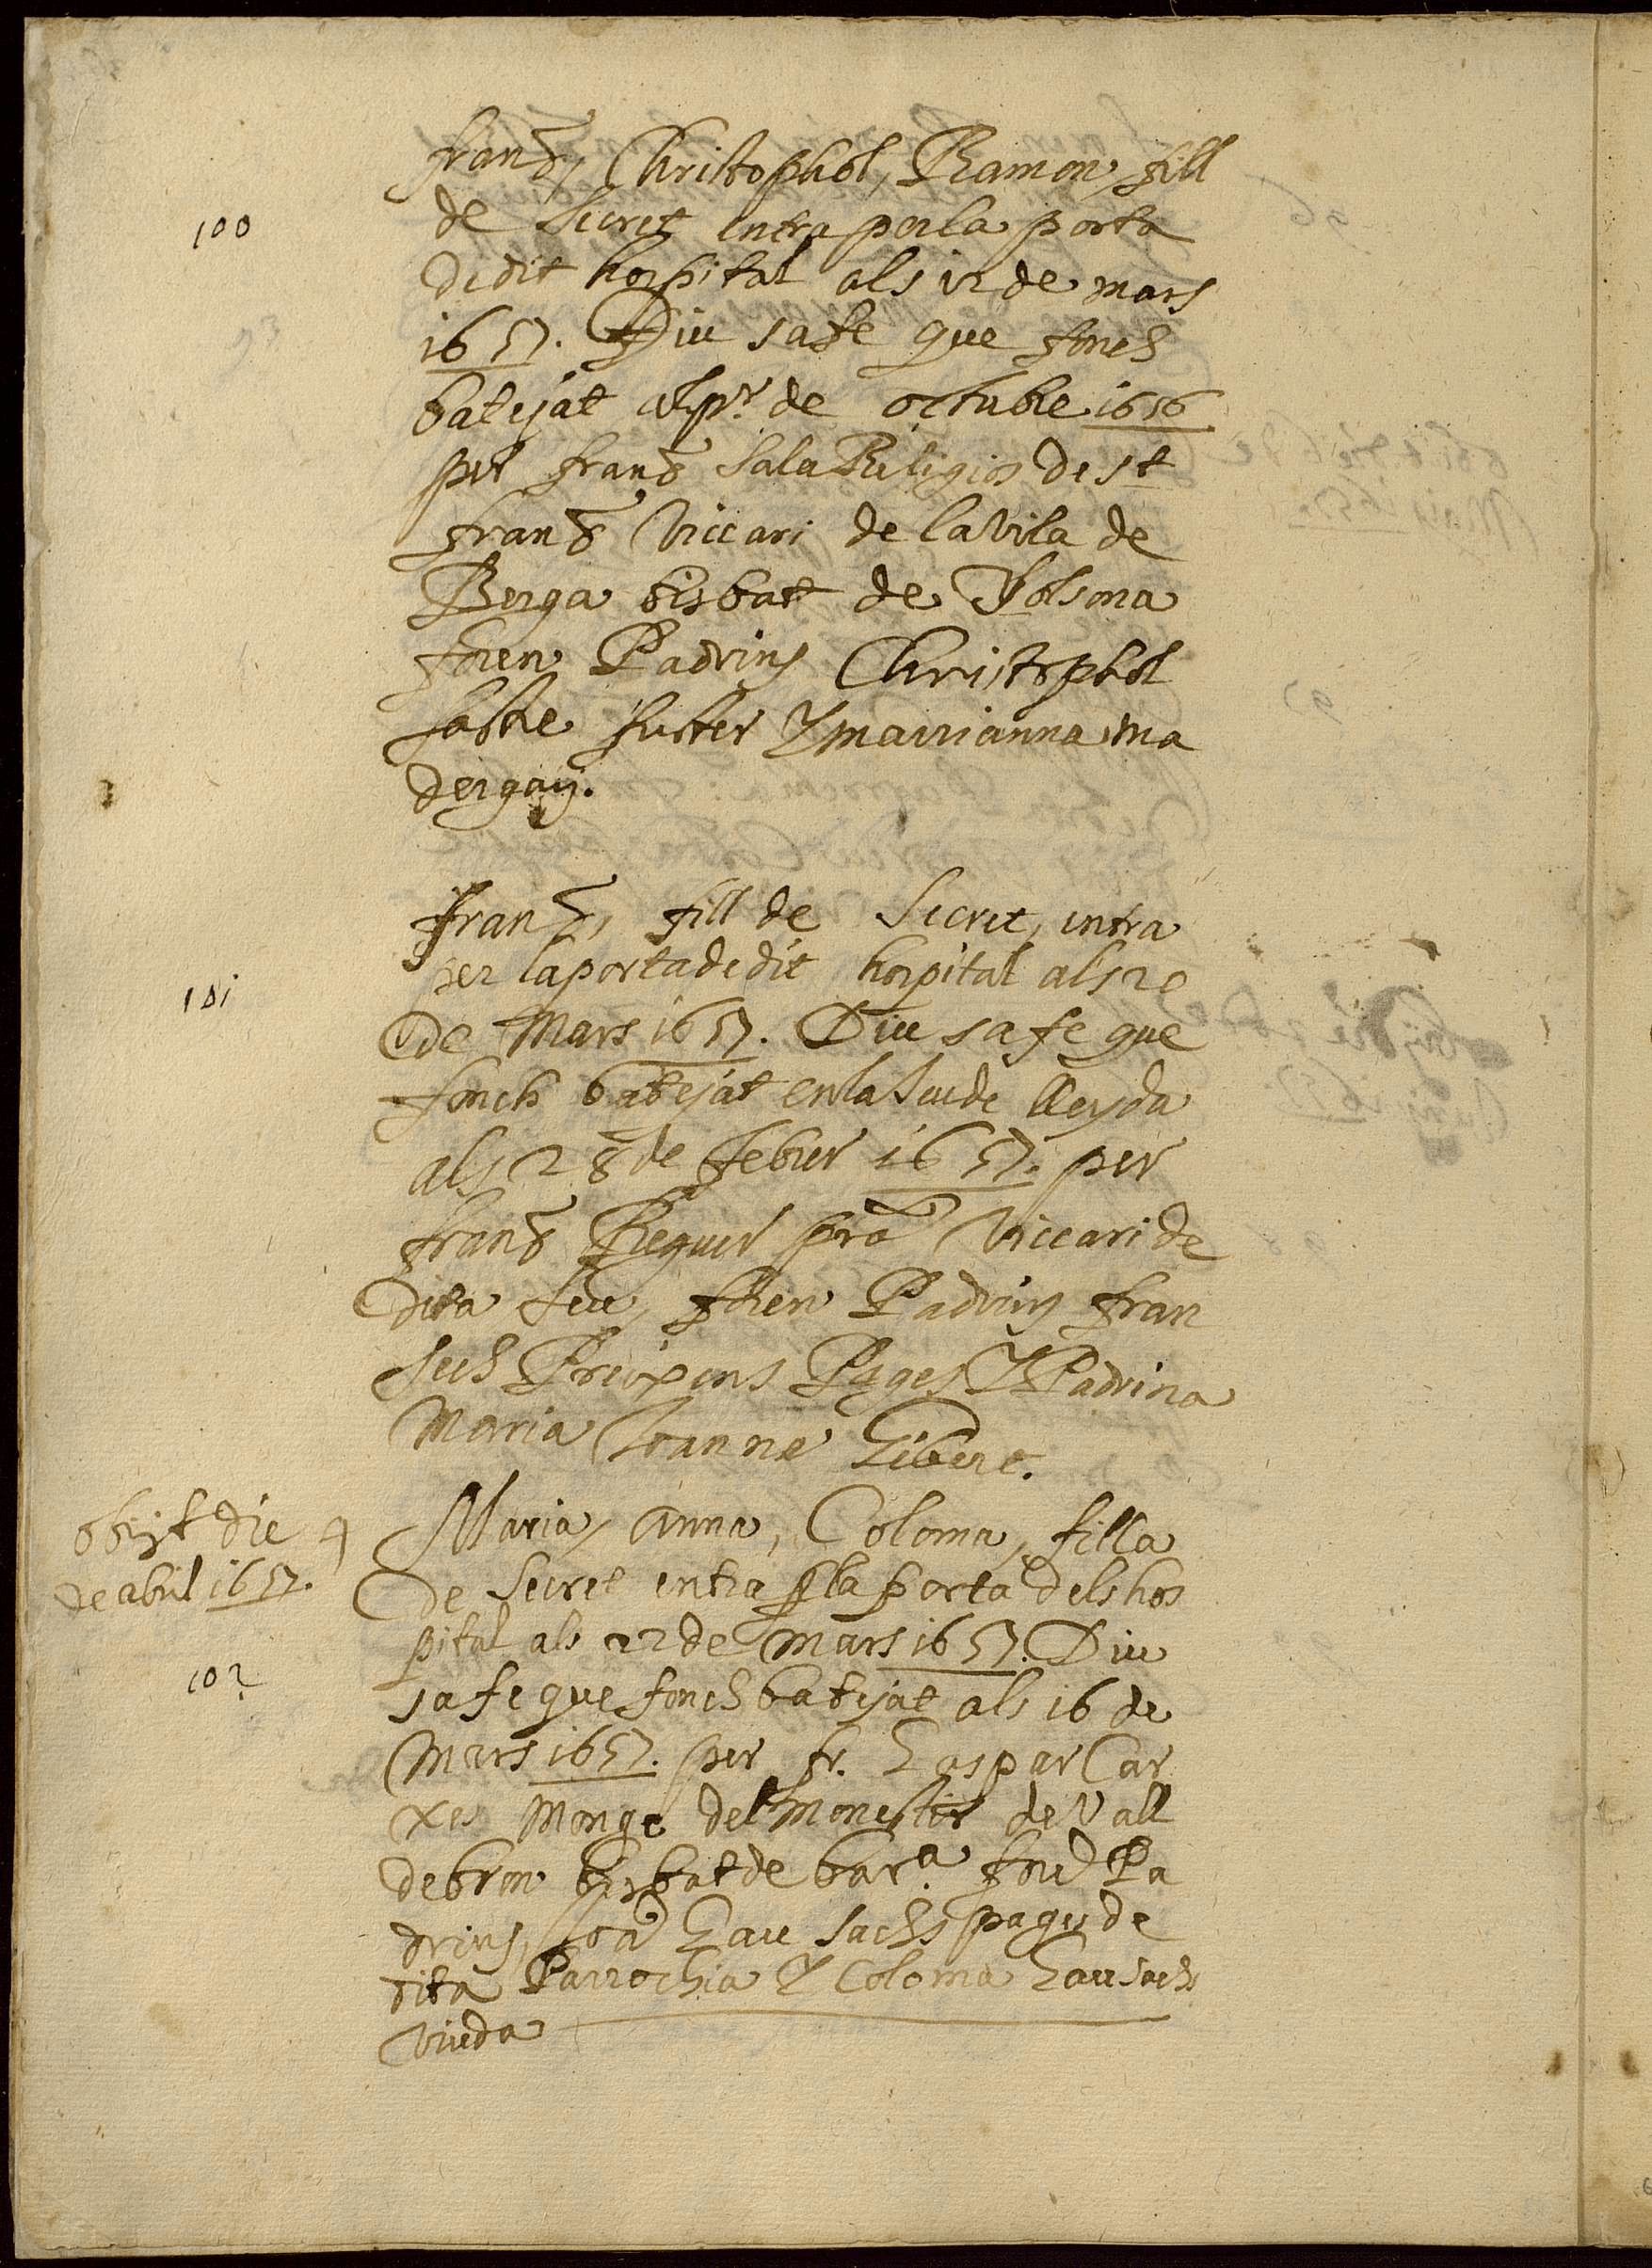 100
fran.ch, Christophol, Ramon, fill
de Secret entra per la porta
de dit hospital als 12 de mars
1657. Diu sa fe que fonch
batejat al pr. de octubre 1656
per fran.ch Sala Religios de st
fran.ch Viccari de la Vila de
Berga bisbat de Solsona
foren Padrins Christophol
sastre fuster Y marrianna ma
101
fran.ch, fill de Secret, intra
per la porta de dit hospital als 20
de Mars 1657. Diu sa fe que
fonch batejat en la Seu de lleyda
als 28 de febrer 1657. per
fran.ch Reguer pra Viccari de
dita Seu, foren Padrins fran
sech Preixens Pages Y Padrina
Maria Joanna Giberc.
obijt die 9
de abril 1657.
102
Maria, Anna, Coloma, filla
de Secret entra p la porta dels hos
pital als 22 de Mars 1657. Diu
sa fe que fonch batejat als 16 de
Mars 1657. per fr. Gaspar Car
xes Monge del monestir de Vall
debron bisbat de bar.a fou Pa
drins, Joa Gau sachs pages de
dita Parrochia Y Coloma Gausachs
Viuda